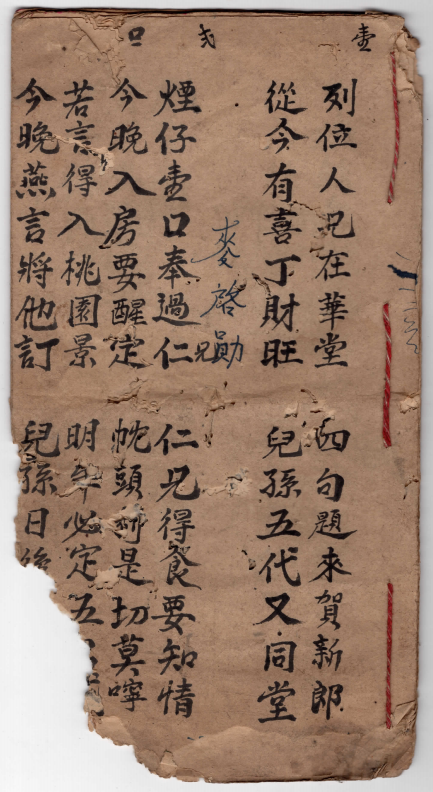 壹
弍
口
列位人兄在華堂 四句題來賀新郎
從今有喜丁財旺 兒孫五代又同堂
麥啓勛
煙仔壹口奉過仁兄 仁兄得餐要知情
今晚入房要醒定 枕頭是切莫嚀
若言得入桃園景 明年必定五
今晚燕言將他訂 兒孫日後